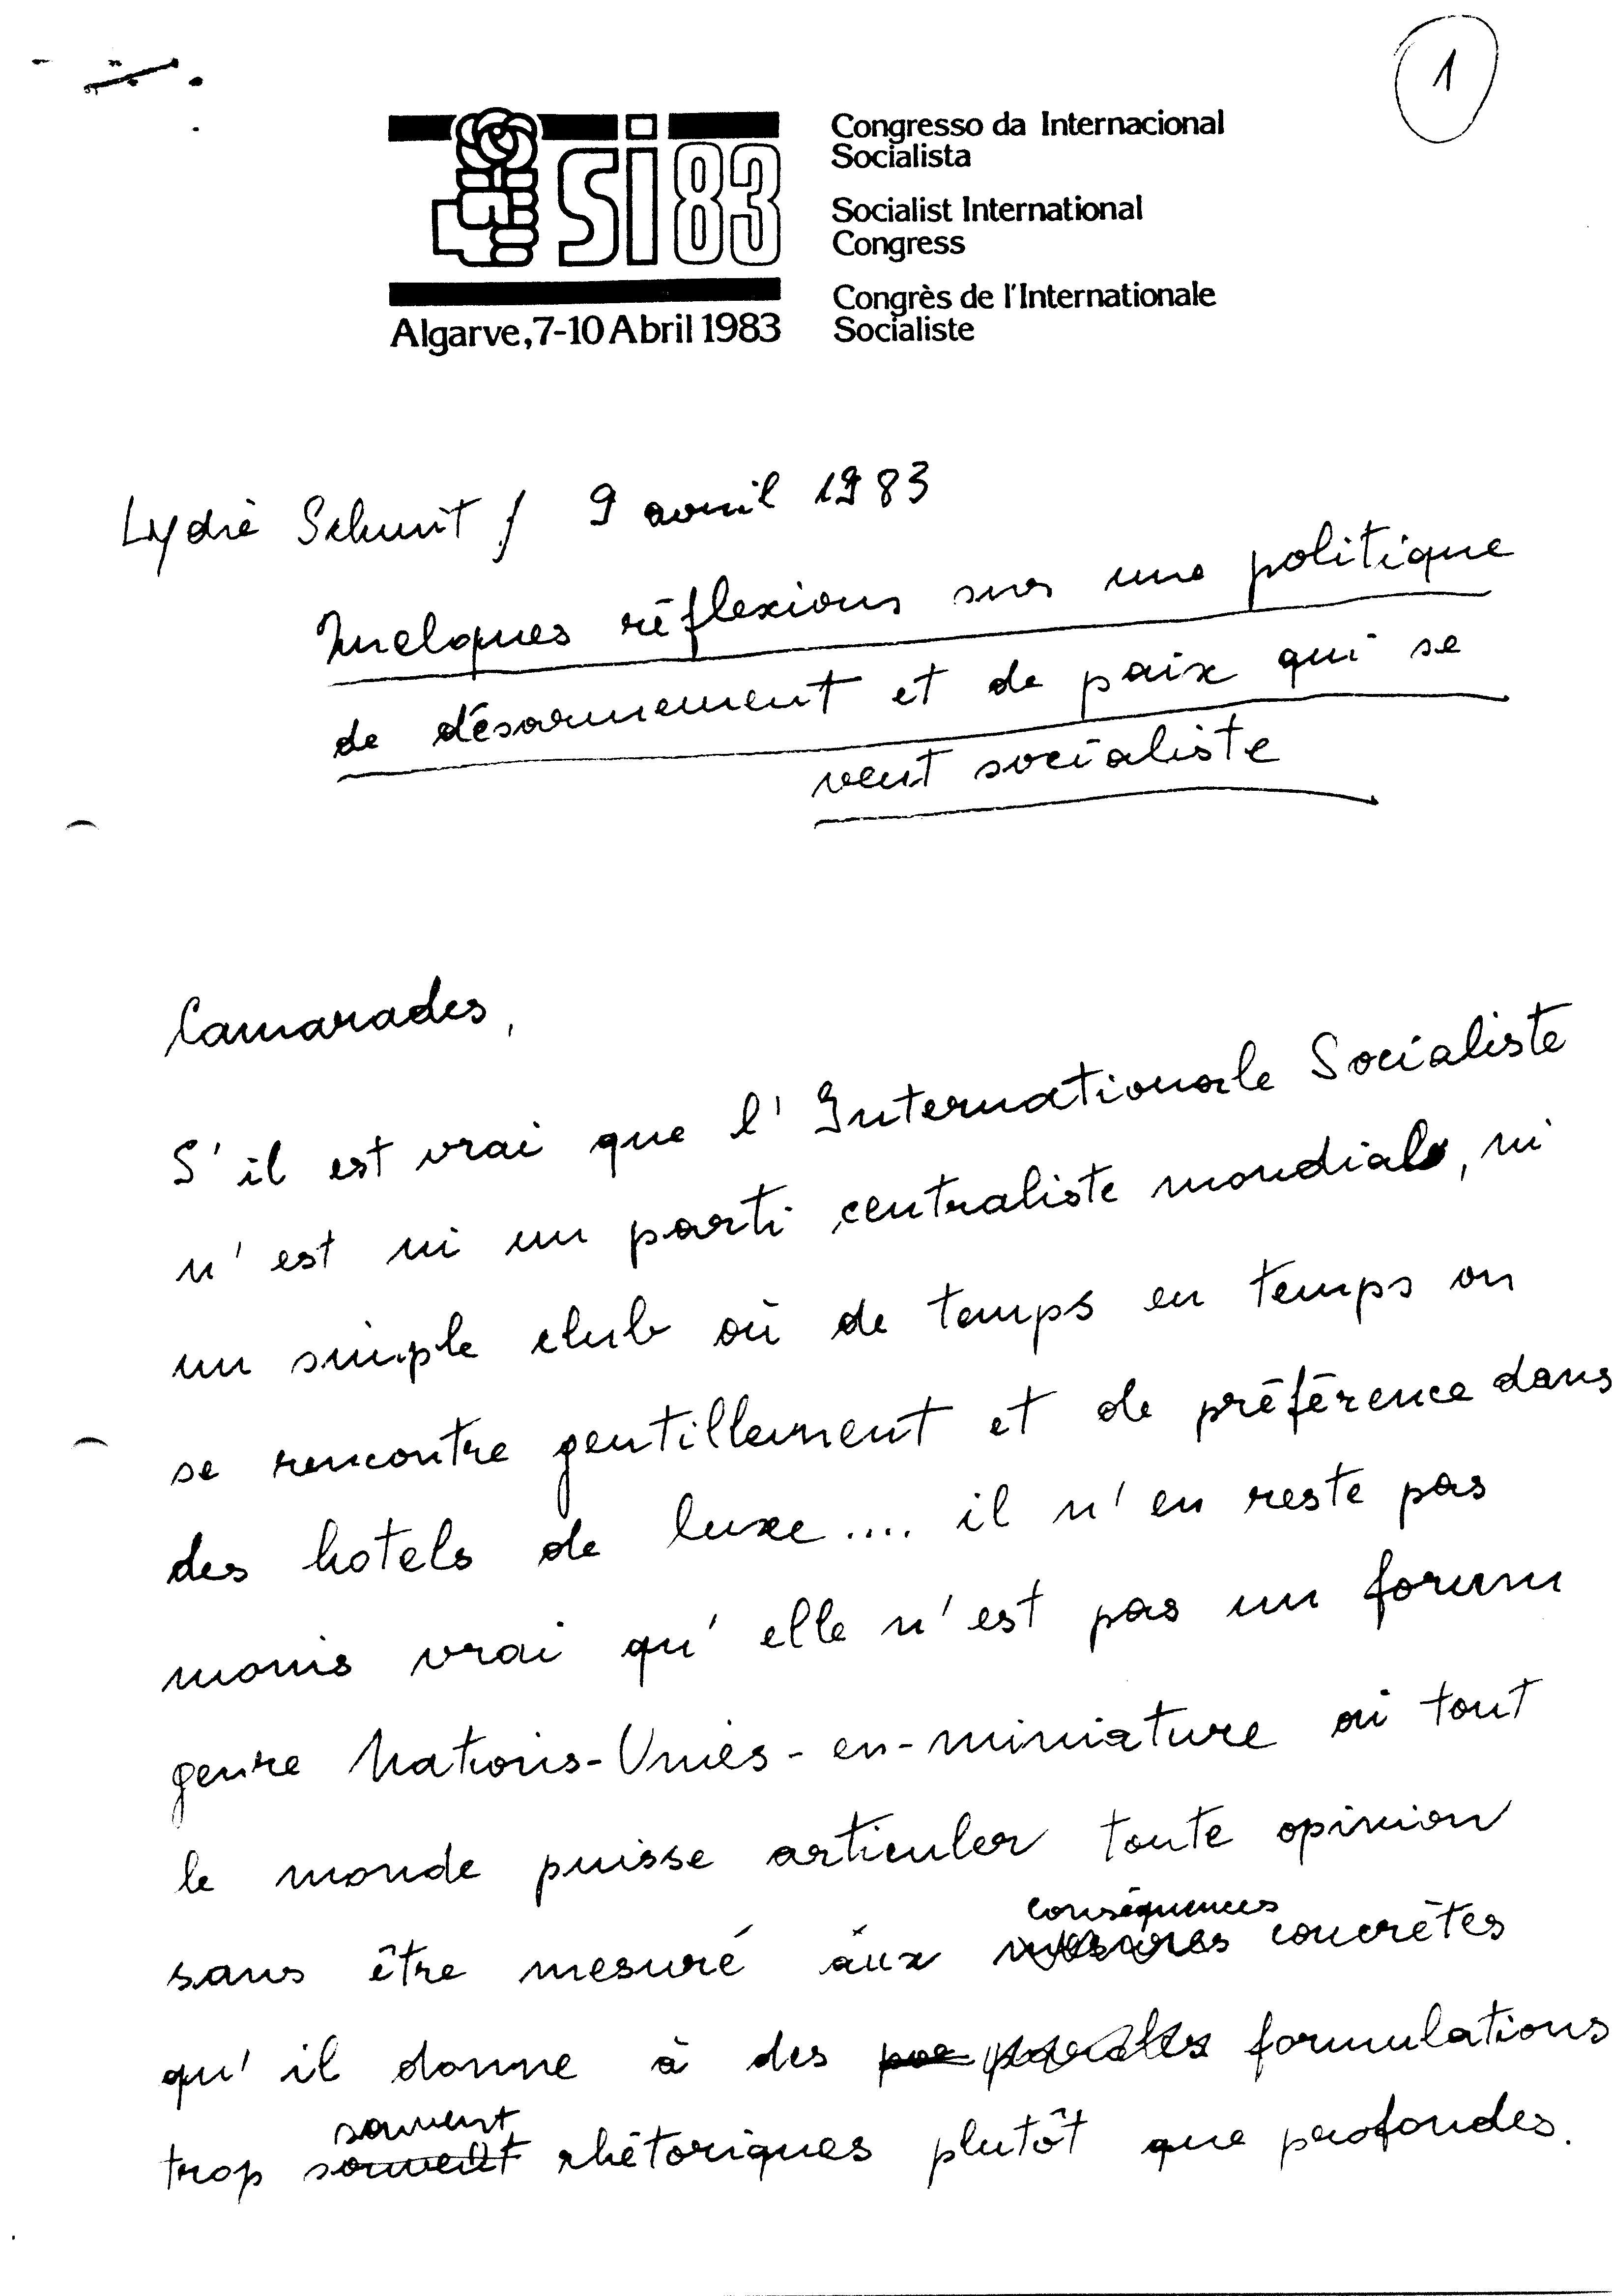 1
Si83
Algarve, 7-10 Abril 1983
Congresso da Internacional
Socialista
Socialist International
Congress
Congrès de l'Internationale
Socialiste
Lydie Schmit / 9 avril 1983
Quelques réflexions sur une politique
de désarmement et de paix qui se
veut socialiste
Camarades,
S'il est vrai que l'Internationale Socialiste
n'est ni un parti centraliste mondial, ni
un simple club où de temps en temps on
se rencontre gentillement et de préférence dans
des hotels de luxe.... il n'en reste pas
moins vrai qu'elle n'est pas un forum
genre Nations-Unies-en-miniature où tout
le monde puisse articuler toute opinion
conséquences
sans être mesuré aux mesures concrètes
qu'il donne à des paroles formulations
souvent
trop souvent rhétoriques plutôt que profondes.